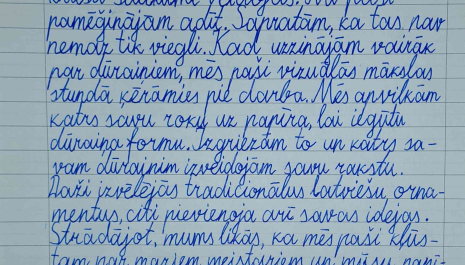 pamēģinājām adīt. Sapratām, ka tas nav
nemaz tik viegli. Kad uzzinājām vairāk
par dūraiņiem, mēs paši vizuālās mākslas
stundā ķērāmies pie darba. Mēs apvilkām
katrs savu roku uz papīra, lai iegūtu
dūraiņa formu. Izgriezām to un katrs sa-
vam dūrainim izveidojām savu rakstu.
Daži izvēlējās tradicionālus latviešu orna-
mentus, citi pievienoja arī savas idejas.
Strādājot, mums likās, ka mēs paši kļūs-
tam par maziem meistariem un mūsu papī-